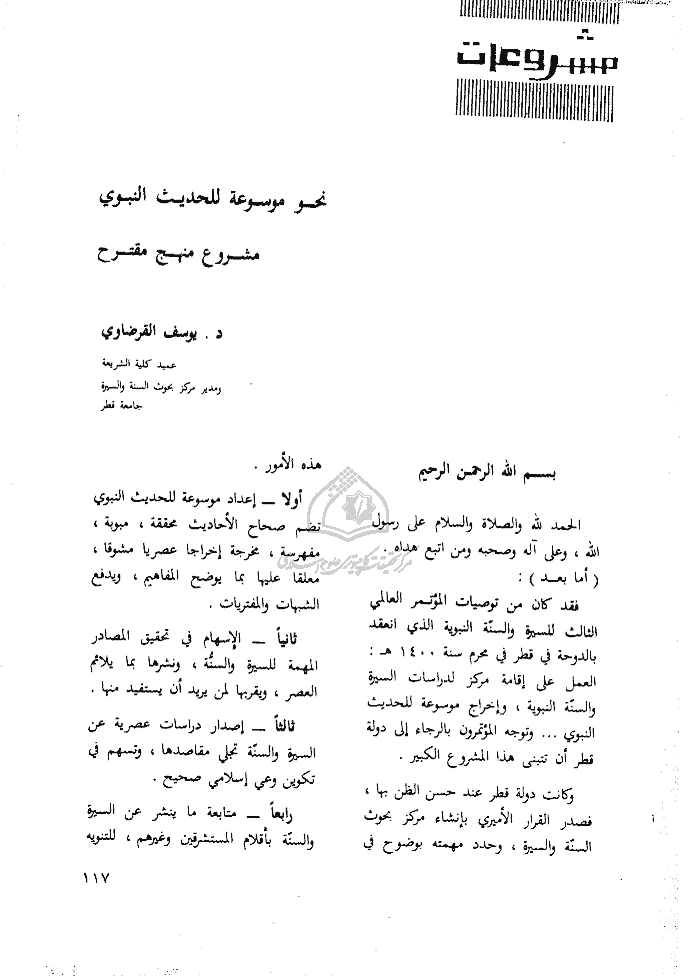 مشروعات
نحو موسوعة للحديث النبوي
مشروع منهج مقترح
د . يوسف القرضاوي
عميد كلية الشريعة
ومدير مركز بحوث السنة والسيرة
جامعة قطر
بسم الله الرحمن الرحيم
الحمد لله والصلاة والسلام على رسول
الله ، وعلى آله وصحبه ومن اتبع هداه .
( أما بعد ) :
فقد كان من توصيات المؤتمر العالمي
الثالث للسيرة والسنّة النبوية الذي انعقد
بالدوحة في قطر في محرم سنة ١٤٠٠ هـ :
العمل على إقامة مركز لدراسات السيرة
والسنّة النبوية ، وإخراج موسوعة للحديث
النبوي ... وتوجه المؤتمرون بالرجاء إلى دولة
قطر أن تتبنى هذا المشروع الكبير .
وكانت دولة قطر عند حسن الظن بها ،
فصدر القرار الأميري بإنشاء مركز بحوث
السنّة والسيرة ، وحدد مهمته بوضوح في
هذه الأمور .
أولا – إعداد موسوعة للحديث النبوي
تضم صحاح الأحاديث محققة ، مبوبة ،
مفهرسة ، مخرجة إخراجا عصريا مشوقا ،
معلقا عليها بما يوضح المفاهيم ، ويدفع
الشبهات والمفتريات .
ثانياً – الإسهام في تحقيق المصادر
المهمة للسيرة والسنُّة ، ونشرها بما يلائم
العصر ، ويقربها لمن يريد أن يستفيد منها .
ثالثاً – إصدار دراسات عصرية عن
السيرة والسنّة تجلي مقاصدها ، وتسهم في
تكوين وعي إسلامي صحيح .
رابعاً – متابعة ما ينشر عن السيرة
والسنّة بأقلام المستشرقين وغيرهم ، للتنويه
١١٧